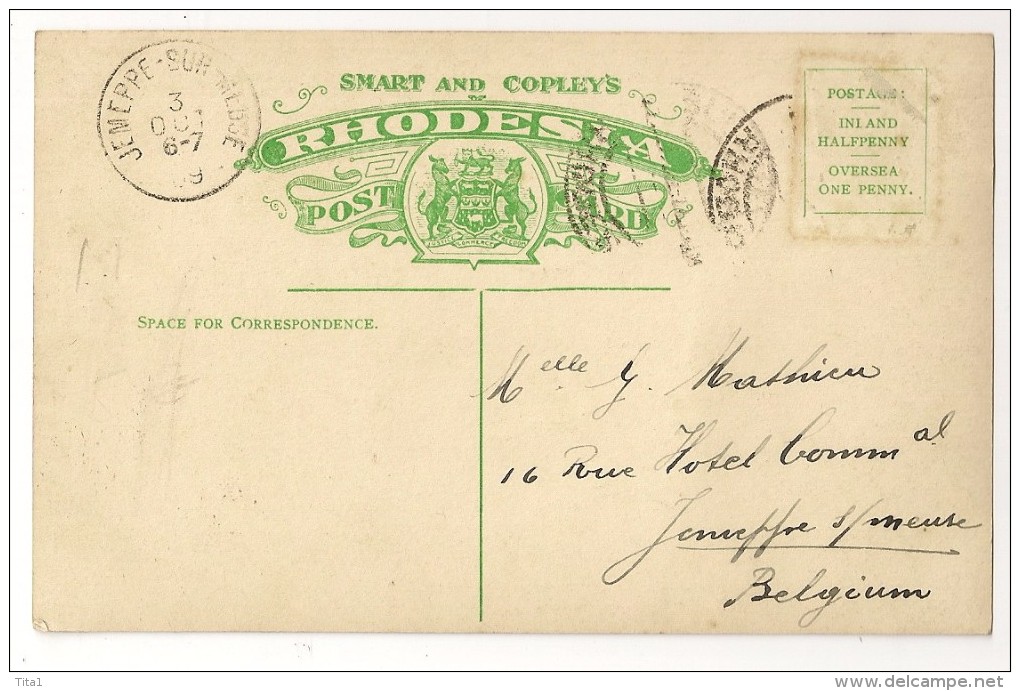 JEMEPPE-SUR-MEUSE
3
OCT
6-7
09
SMART AND COPLEY'S
RHODESIA
POST CARD
JUSTICE COMMERCE FREEDOM
POSTAGE:
INLAND
HALFPENNY
OVERSEA
ONE PENNY.
SPACE FOR CORRESPONDENCE.
Melle Y. Mathieu
16 Rue Hotel Commal
Jemeppe s/meuse
Belgium
Tita1
www.delcampe.net